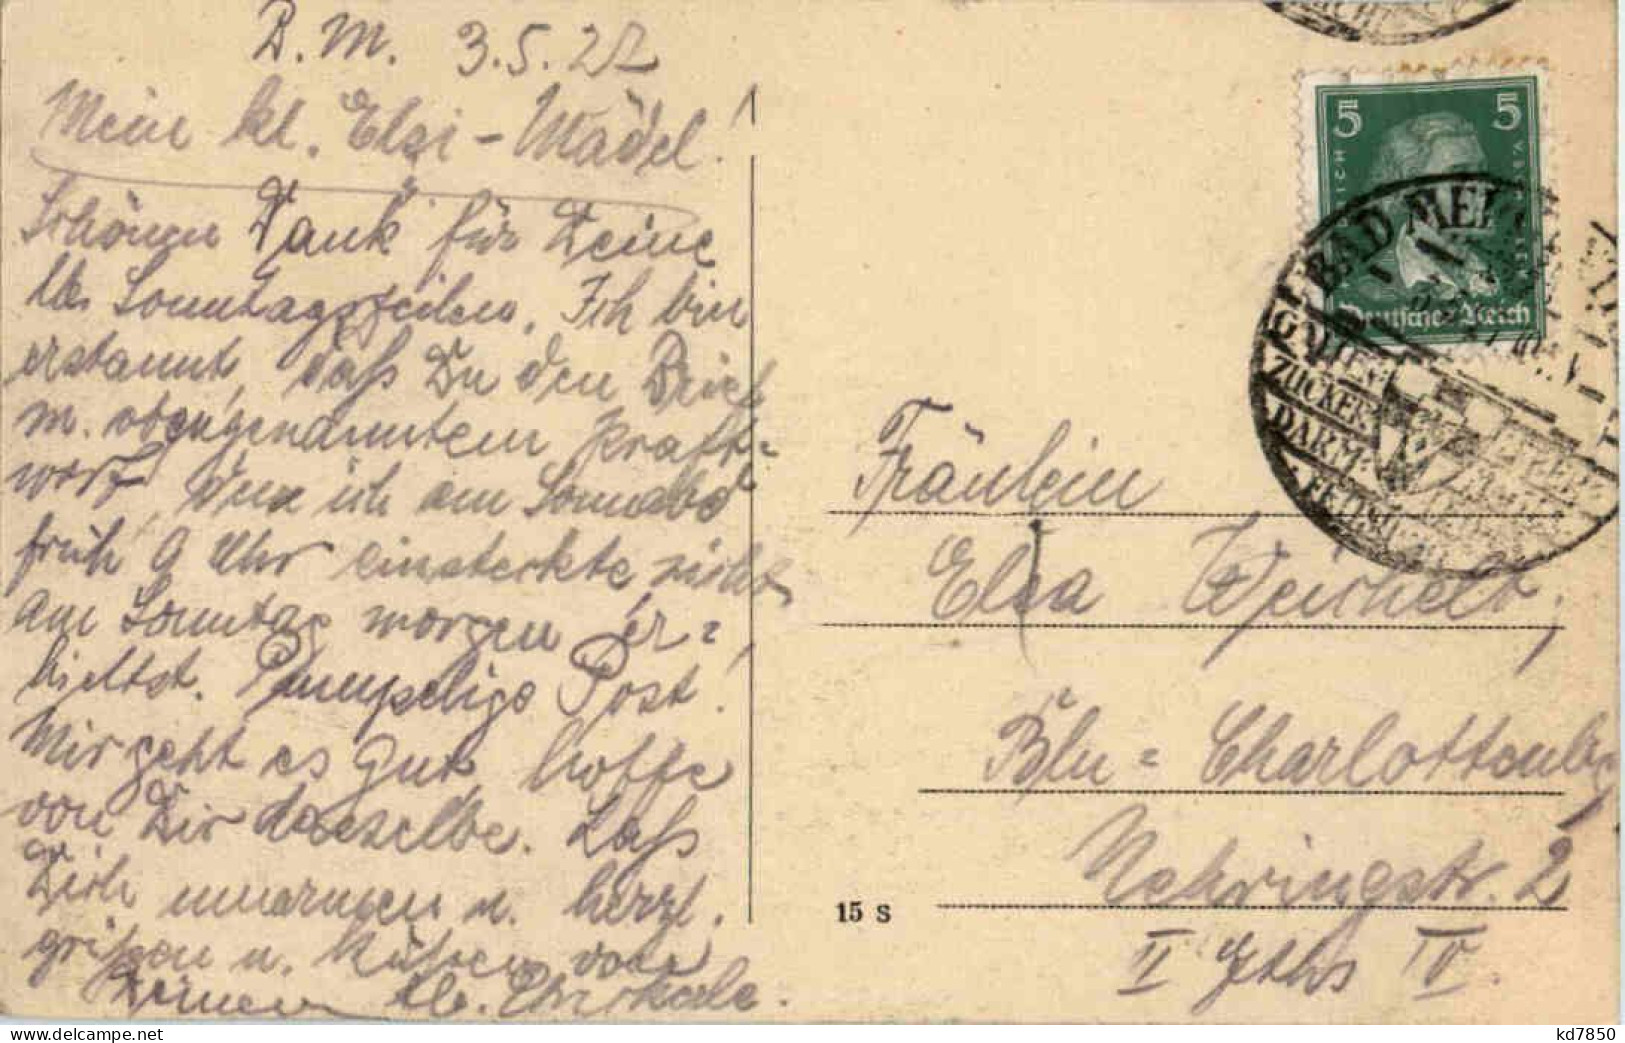 B. M. 3.5.27
Mein kl. Elsi-Mädel!
Schönen Dank für Deine
lb. Sonntagszeilen. Ich bin
erstaunt, daß Du den Brief
m. obengenanntem Kraft=
wort, den ich am Sonnabd
früh 9 Uhr einsteckte nicht
am Sonntag morgen er=
hieltst. Pumpelige Post!
Mir geht es gut, hoffe
von Dir dasselbe. Laß
Dich umarmen u. herzl.
grüßen u. küssen von
Deinem
5 5
Deutsches Reich
BAD MER
GALLEN
ZUCKER
DARM
FETTSUCHT
Fräulein
Elsa Weichelt,
Bln = Charlottenbg
Nehringstr. 2
II Gths IV.
15 S
kd7850